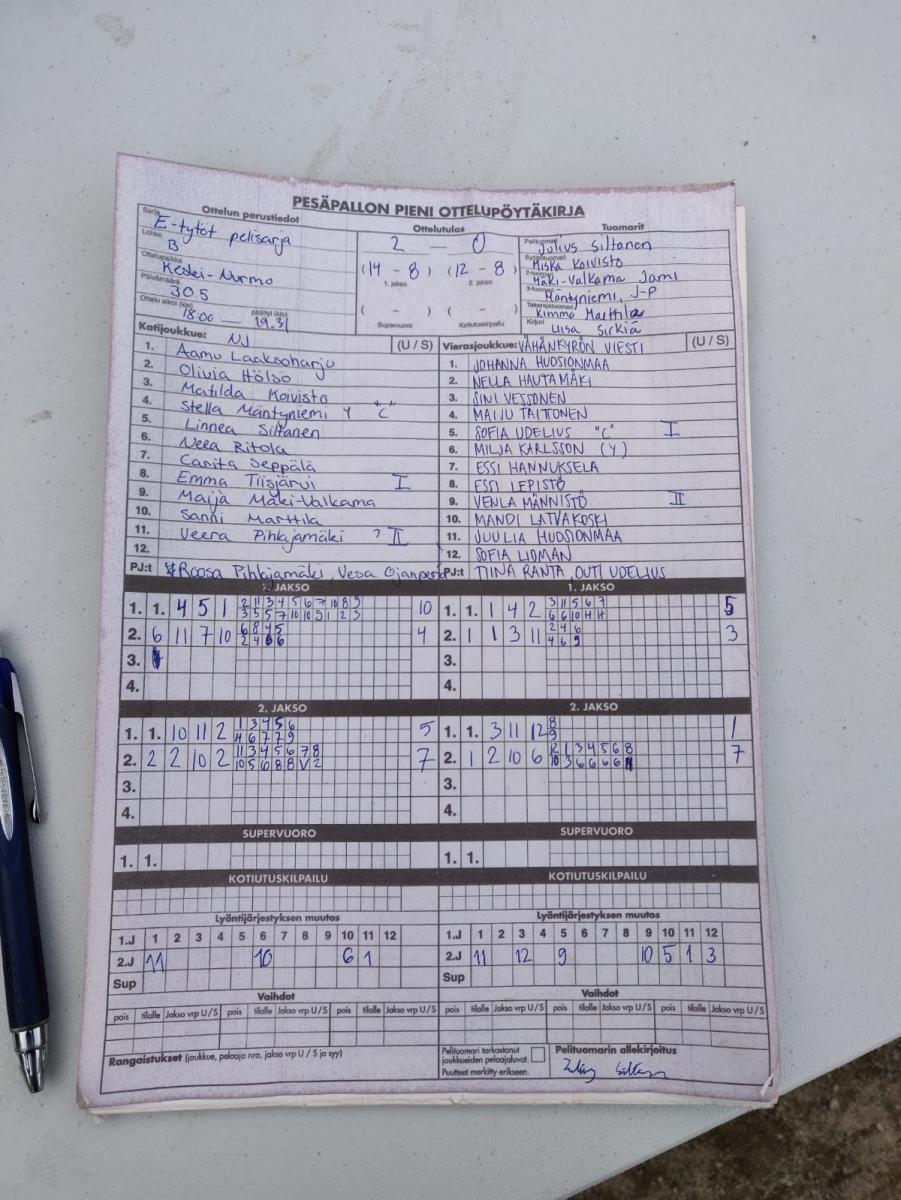 PESÄPALLON PIENI OTTELUPÖYTÄKIRJA
Ottelun perustiedot
Sarja
E-tytöt pelisarja
Lohko
B
Ottelupaikka
Keski-Nurmo
Päivämäärä
30.5
Ottelu alkoi (klo) 18.00 päättyi (klo) 19.31
Ottelutulos
2 — 0
(14 - 8) (12 - 8)
1. jakso 2. jakso
( - ) ( - )
Supervuoro Kotiutuskilpailu
Tuomarit
Pelituomari Julius Siltanen
Miska Koivisto
2-tuomari Mäki-Valkama Jami
3-tuomari Mäntyniemi, J-P
Takarajatuomari Kimmo Marttila
Kirjuri Sirkiä
Kotijoukkue: NJ (U / S)
1. Aamu Laaksoharju
2. Olivia Hölsö
3. Matilda Koivisto
4. Stella Mäntyniemi Y "C"
5. Linnea Siltanen
6. Neea Ritola
7. Carita Seppälä
8. Emma Tiisjärvi I
9. Maija Mäki-Valkama
10. Sanni Marttila
11. Veera Pihlajamäki ? II
12.
PJ:t Roosa Pihlajamäki, Vesa Ojanperä
Vierasjoukkue: VÄHÄNKYRÖN VIESTI (U / S)
1. JOHANNA HUDSIONMAA
2. NELLA HAUTAMÄKI
3. SINI VESSONEN
4. MAIJU TAITONEN
5. SOFIA UDELIUS "C" I
6. MILJA KARLSSON (Y)
7. ESSI HANNUKSELA
8. ESSI LEPISTÖ
9. VENLA MÄNNISTÖ II
10. MANDI LATVAKOSKI
11. JUULIA HUDSIONMAA
12. SOFIA LIDMAN
PJ:t TIINA RANTA OUTI UDELIUS
1. JAKSO
1. 1. 4 5 1 2 11 3 4 5 6 7 10 8 9 10
3 5 5 7 10 10 9 1 2 3
2. 6 11 7 10 6 8 4 5 4
2 4 6 6
3.
4.
1. JAKSO
1. 1. 1 4 2 3 11 5 6 7 5
6 6 10 H H
2. 1 1 3 11 2 4 6 3
4 6 9
3.
4.
2. JAKSO
1. 1. 10 11 2 1 3 4 5 6 5
4 6 7 7 9
2. 2 2 10 2 11 3 4 5 6 7 8 7
10 5 6 8 8 V 2
3.
4.
2. JAKSO
1. 1. 3 11 12 8 1
9
2. 1 2 10 6 12 1 3 4 5 6 8 7
10 3 6 6 6 6
3.
4.
SUPERVUORO
1. 1.
SUPERVUORO
1. 1.
KOTIUTUSKILPAILU
KOTIUTUSKILPAILU
Lyöntijärjestyksen muutos
1.J 1 2 3 4 5 6 7 8 9 10 11 12
2.J 11 10 6 1
Sup
Lyöntijärjestyksen muutos
1.J 1 2 3 4 5 6 7 8 9 10 11 12
2.J 11 12 9 10 5 1 3
Sup
Vaihdot
pois tilalle Jakso vrp U / S pois tilalle Jakso vrp U / S pois tilalle Jakso vrp U / S
Vaihdot
pois tilalle Jakso vrp U / S pois tilalle Jakso vrp U / S pois tilalle Jakso vrp U / S
Rangaistukset (joukkue, pelaaja nro, jakso vrp U / S ja syy)
Pelituomari tarkastanut
joukkueiden pelaajaluvat.
Puutteet merkitty erikseen.
Pelituomarin allekirjoitus